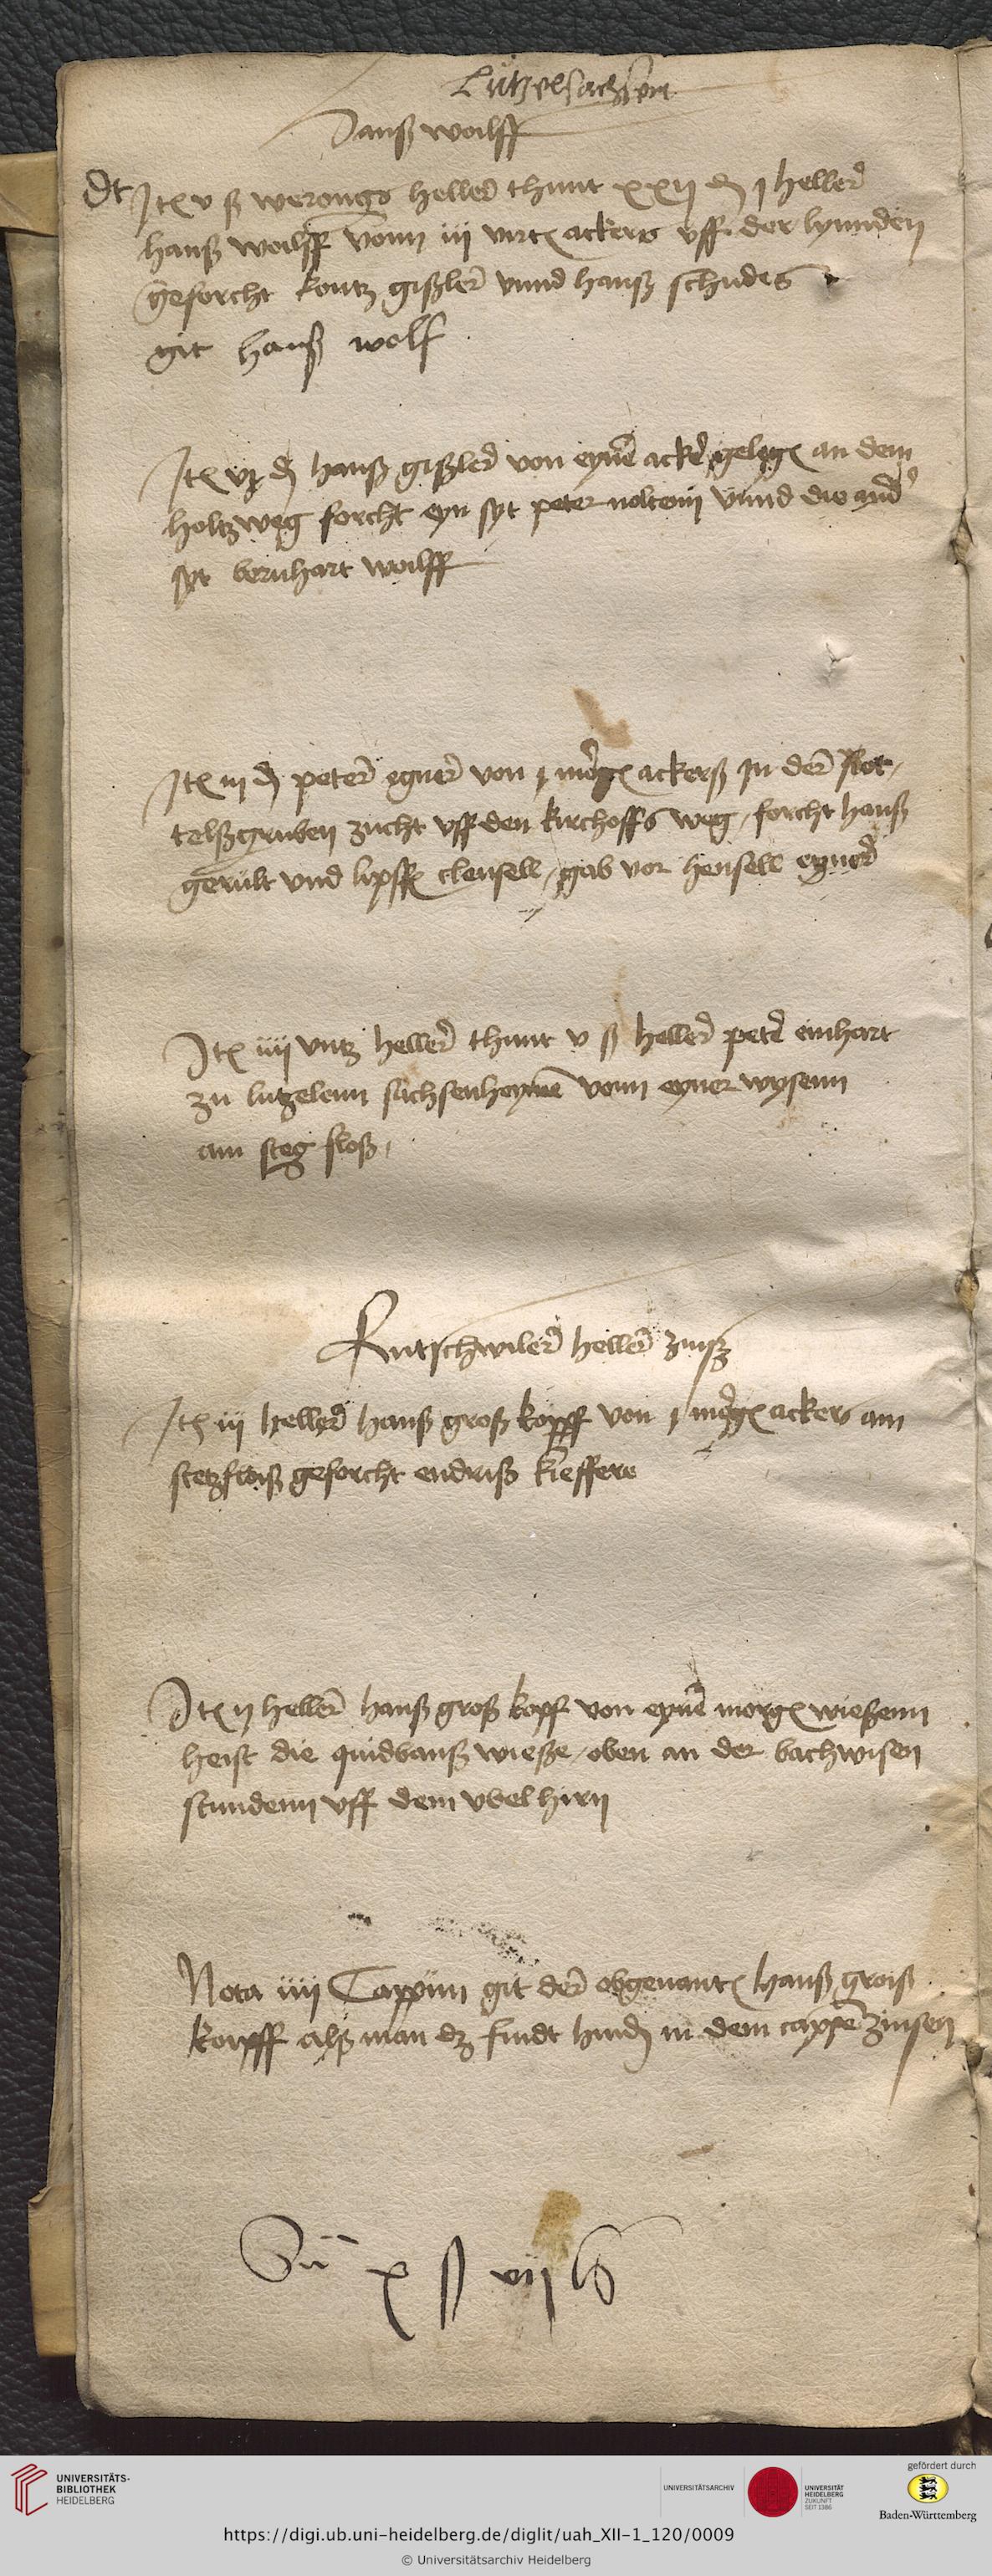 Lutzelsachsen
Hanß woilff
dt Itē v ß werongs heller thunt xxij ₰ j heller
hanß woilff vonn iij virtē ackers vff der lynnden
geforcht kontz gißler vnnd hanß schudes
git hanß wolf
Itē vj ₰ hanß gißler von eynē acker gelegē an dem
holtzweg forcht eyn syt peter noltenn vnnd die and
syt bernhart woilff
Itē iij ₰ peter egner von j morgē ackerß In der
telßgruben zucht vff den kirchoffs weg, forcht hanß
gerult vnd lipssē clensell, gab vor hensell eyner
Itē iiij vntz heller thunt v ß heller peter einhart
zu lutzelenn sachsenheymē vonn eyner wysenn
am steg floß,
Rutschwiler heller zinß
Itē iij heller hanß groß kopff von j morgē ackers am
stetzfloiß geforcht endriß kieffere
Itē ij heller hanß groß kopf von eynē morgē wießenn
heist die quidbanß wieße, oben an der bachwisen
stundenn vff dem vbelhirn
Nota iiij Cappun git der obgenantē hanß groiß
koipfff alß man dz findt hind in dem cappē zinsen
Su x ß vij h
UNIVERSITÄTS-
BIBLIOTHEK
HEIDELBERG
UNIVERSITÄTSARCHIV
UNIVERSITÄT
HEIDELBERG
ZUKUNFT
SEIT 1386
gefördert durch
Baden-Württemberg
https://digi.ub.uni-heidelberg.de/diglit/uah_XII-1_120/0009
© Universitätsarchiv Heidelberg